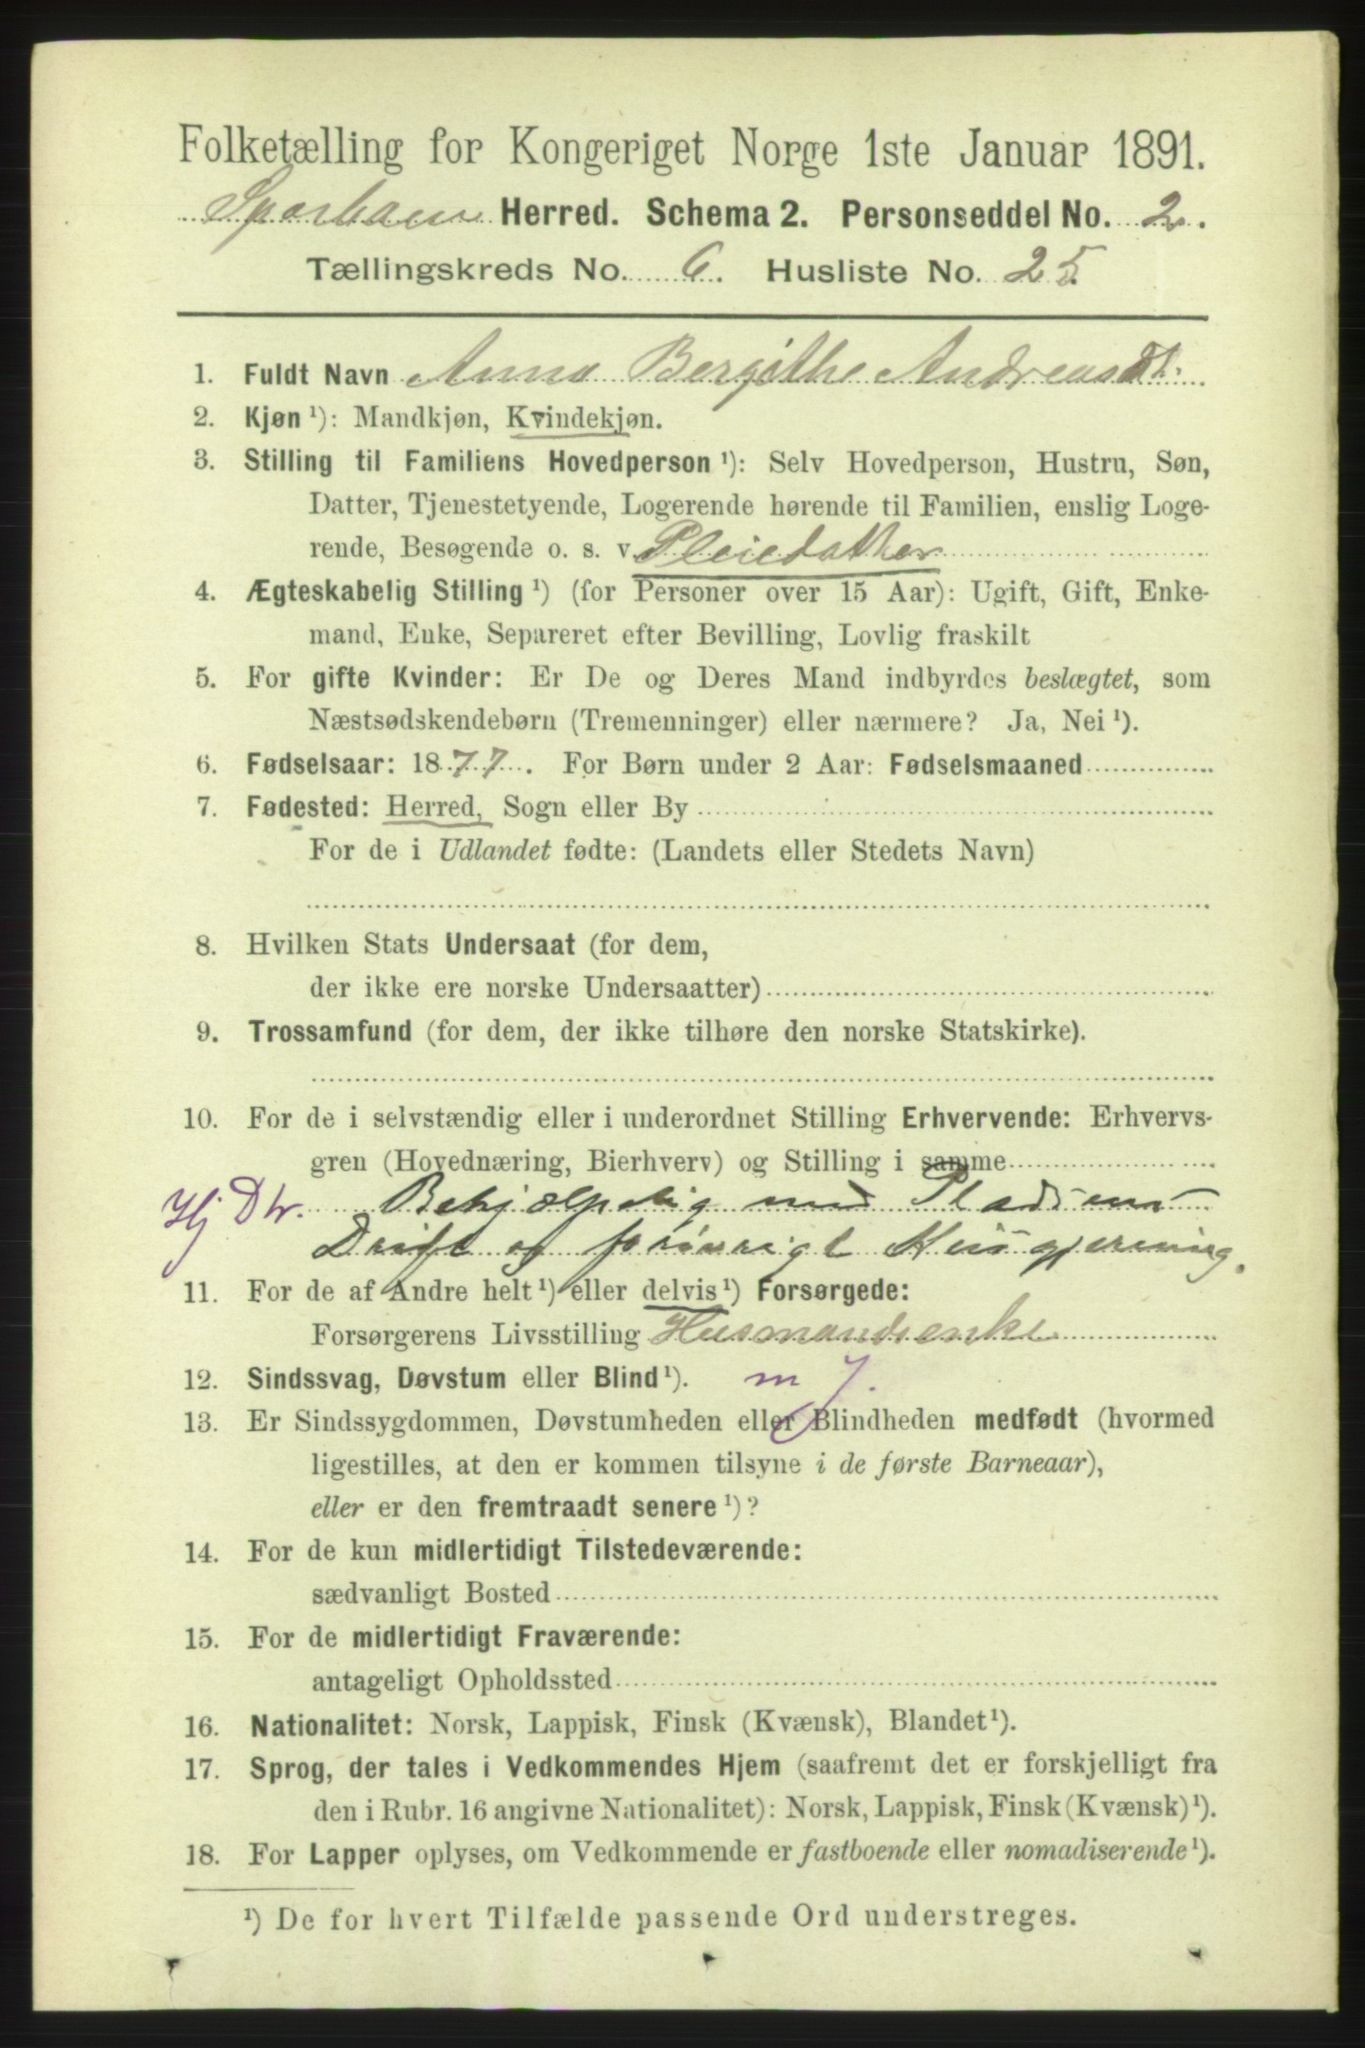 Folketælling for Kongeriget Norge 1ste Januar 1891.
Sparbuen Herred. Schema 2. Personseddel No. 2.
Tællingskreds No. 6. Husliste No. 25
1. Fuldt Navn Anna Bergithe Andreasdt.
2. Kjøn ¹): Mandkjøn, Kvindekjøn.
3. Stilling til Familiens Hovedperson ¹): Selv Hovedperson, Hustru, Søn,
Datter, Tjenestetyende, Logerende hørende til Familien, enslig Loge-
rende, Besøgende o. s. v. Pleiedatter
4. Ægteskabelig Stilling ¹) (for Personer over 15 Aar): Ugift, Gift, Enke-
mand, Enke, Separeret efter Bevilling, Lovlig fraskilt
5. For gifte Kvinder: Er De og Deres Mand indbyrdes beslægtet, som
Næstsødskendebørn (Tremenninger) eller nærmere? Ja, Nei ¹).
6. Fødselsaar: 1877. For Børn under 2 Aar: Fødselsmaaned
7. Fødested: Herred, Sogn eller By
For de i Udlandet fødte: (Landets eller Stedets Navn)
8. Hvilken Stats Undersaat (for dem,
der ikke ere norske Undersaatter)
9. Trossamfund (for dem, der ikke tilhøre den norske Statskirke).
10. For de i selvstændig eller i underordnet Stilling Erhvervende: Erhvervs-
gren (Hovednæring, Bierhverv) og Stilling i samme
Hj Dtr. Behjælpelig med Pladsens
Drift og forøvrigt Husgjerning.
11. For de af Andre helt ¹) eller delvis ¹) Forsørgede:
Forsørgerens Livsstilling Husmandsenke
12. Sindssvag, Døvstum eller Blind ¹). m J.
13. Er Sindssygdommen, Døvstumheden eller Blindheden medfødt (hvormed
ligestilles, at den er kommen tilsyne i de første Barneaar),
eller er den fremtraadt senere ¹)?
14. For de kun midlertidigt Tilstedeværende:
sædvanligt Bosted
15. For de midlertidigt Fraværende:
antageligt Opholdssted
16. Nationalitet: Norsk, Lappisk, Finsk (Kvænsk), Blandet ¹).
17. Sprog, der tales i Vedkommendes Hjem (saafremt det er forskjelligt fra
den i Rubr. 16 angivne Nationalitet): Norsk, Lappisk, Finsk (Kvænsk) ¹).
18. For Lapper oplyses, om Vedkommende er fastboende eller nomadiserende ¹).
¹) De for hvert Tilfælde passende Ord understreges.